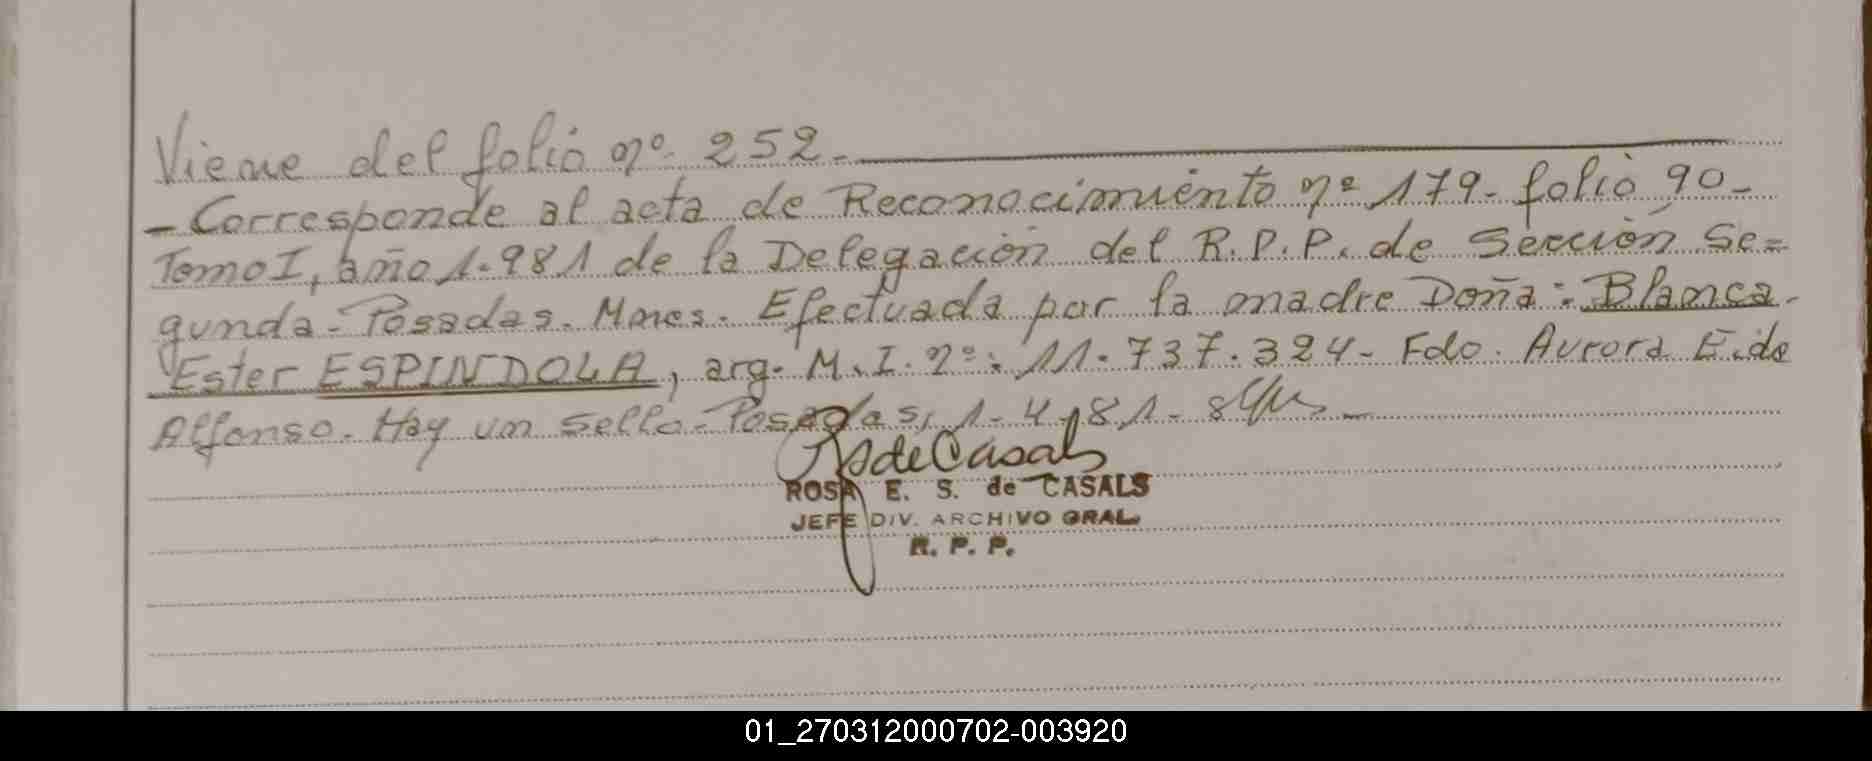 Viene del folio nº 252.
- Corresponde al acta de Reconocimiento nº 179 - folio 90 -
Tomo I, año 1.981 de la Delegación del R.P.P. de Sección Se=
gunda - Posadas. Mnes. Efectuada por la madre Doña: Blanca -
Ester ESPINDOLA, arg. M.I. nº: 11.737.324 - Fdo. Aurora E. de
Alfonso. Hay un sello - Posadas, 1-4-81 -
R S de Casals
ROSA E. S. de CASALS
JEFE DIV. ARCHIVO GRAL.
R. P. P.
01_270312000702-003920